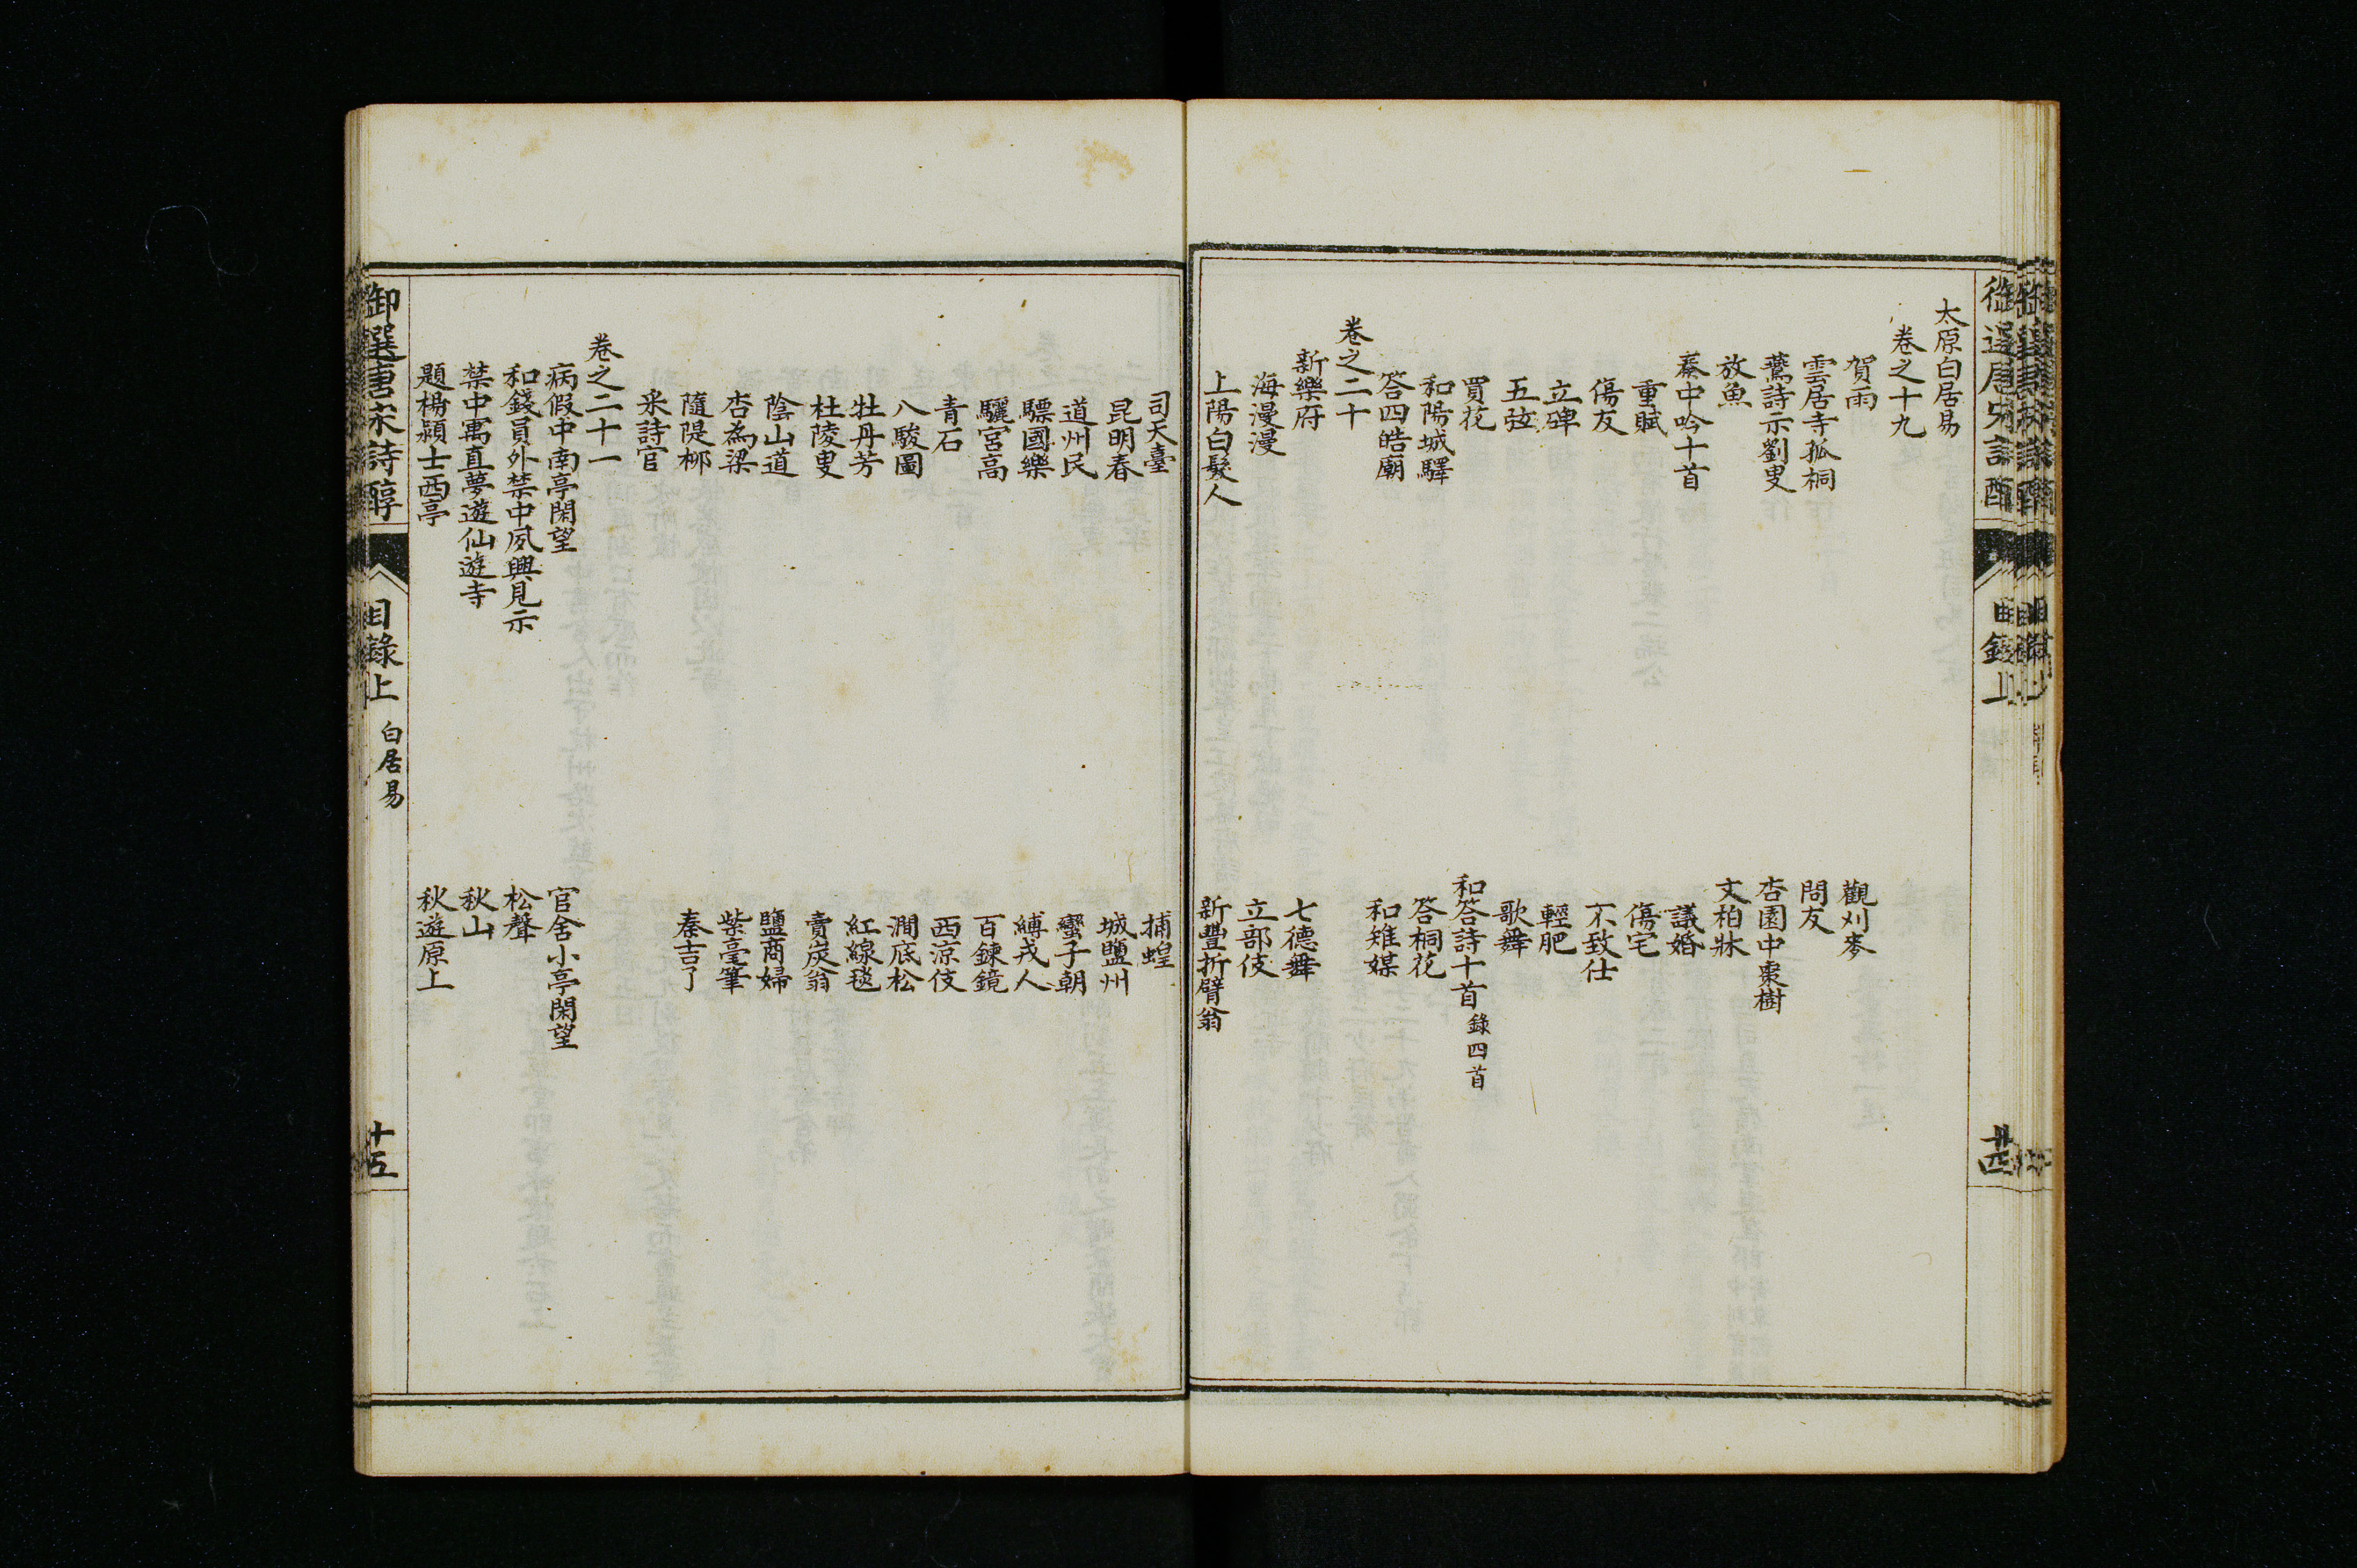 太原白居易
卷之十九
賀雨
觀刈麥
雲居寺孤桐
問友
鷰詩示劉叟
杏園中棗樹
放魚
文柏牀
秦中吟十首
議婚
重賦
傷宅
傷友
不致仕
立碑
輕肥
五弦
歌舞
買花
和答詩十首錄四首
和陽城驛
答桐花
答四皓廟
和雉媒
卷之二十
新樂府
七德舞
海漫漫
立部伎
上陽白髮人
新豐折臂翁
司天臺
捕蝗
昆明春
城鹽州
道州民
蠻子朝
驃國樂
縛戎人
驪宮高
百鍊鏡
青石
西涼伎
八駿圖
澗底松
牡丹芳
紅線毯
杜陵叟
賣炭翁
陰山道
鹽商婦
杏為梁
紫毫筆
隨隄柳
秦吉了
采詩官
卷之二十一
病假中南亭閑望
官舍小亭閑望
和錢員外禁中夙興見示
松聲
禁中寓直夢遊仙遊寺
秋山
題楊潁士西亭
秋遊原上
御選唐宋詩醇
目錄上
白居易
十五